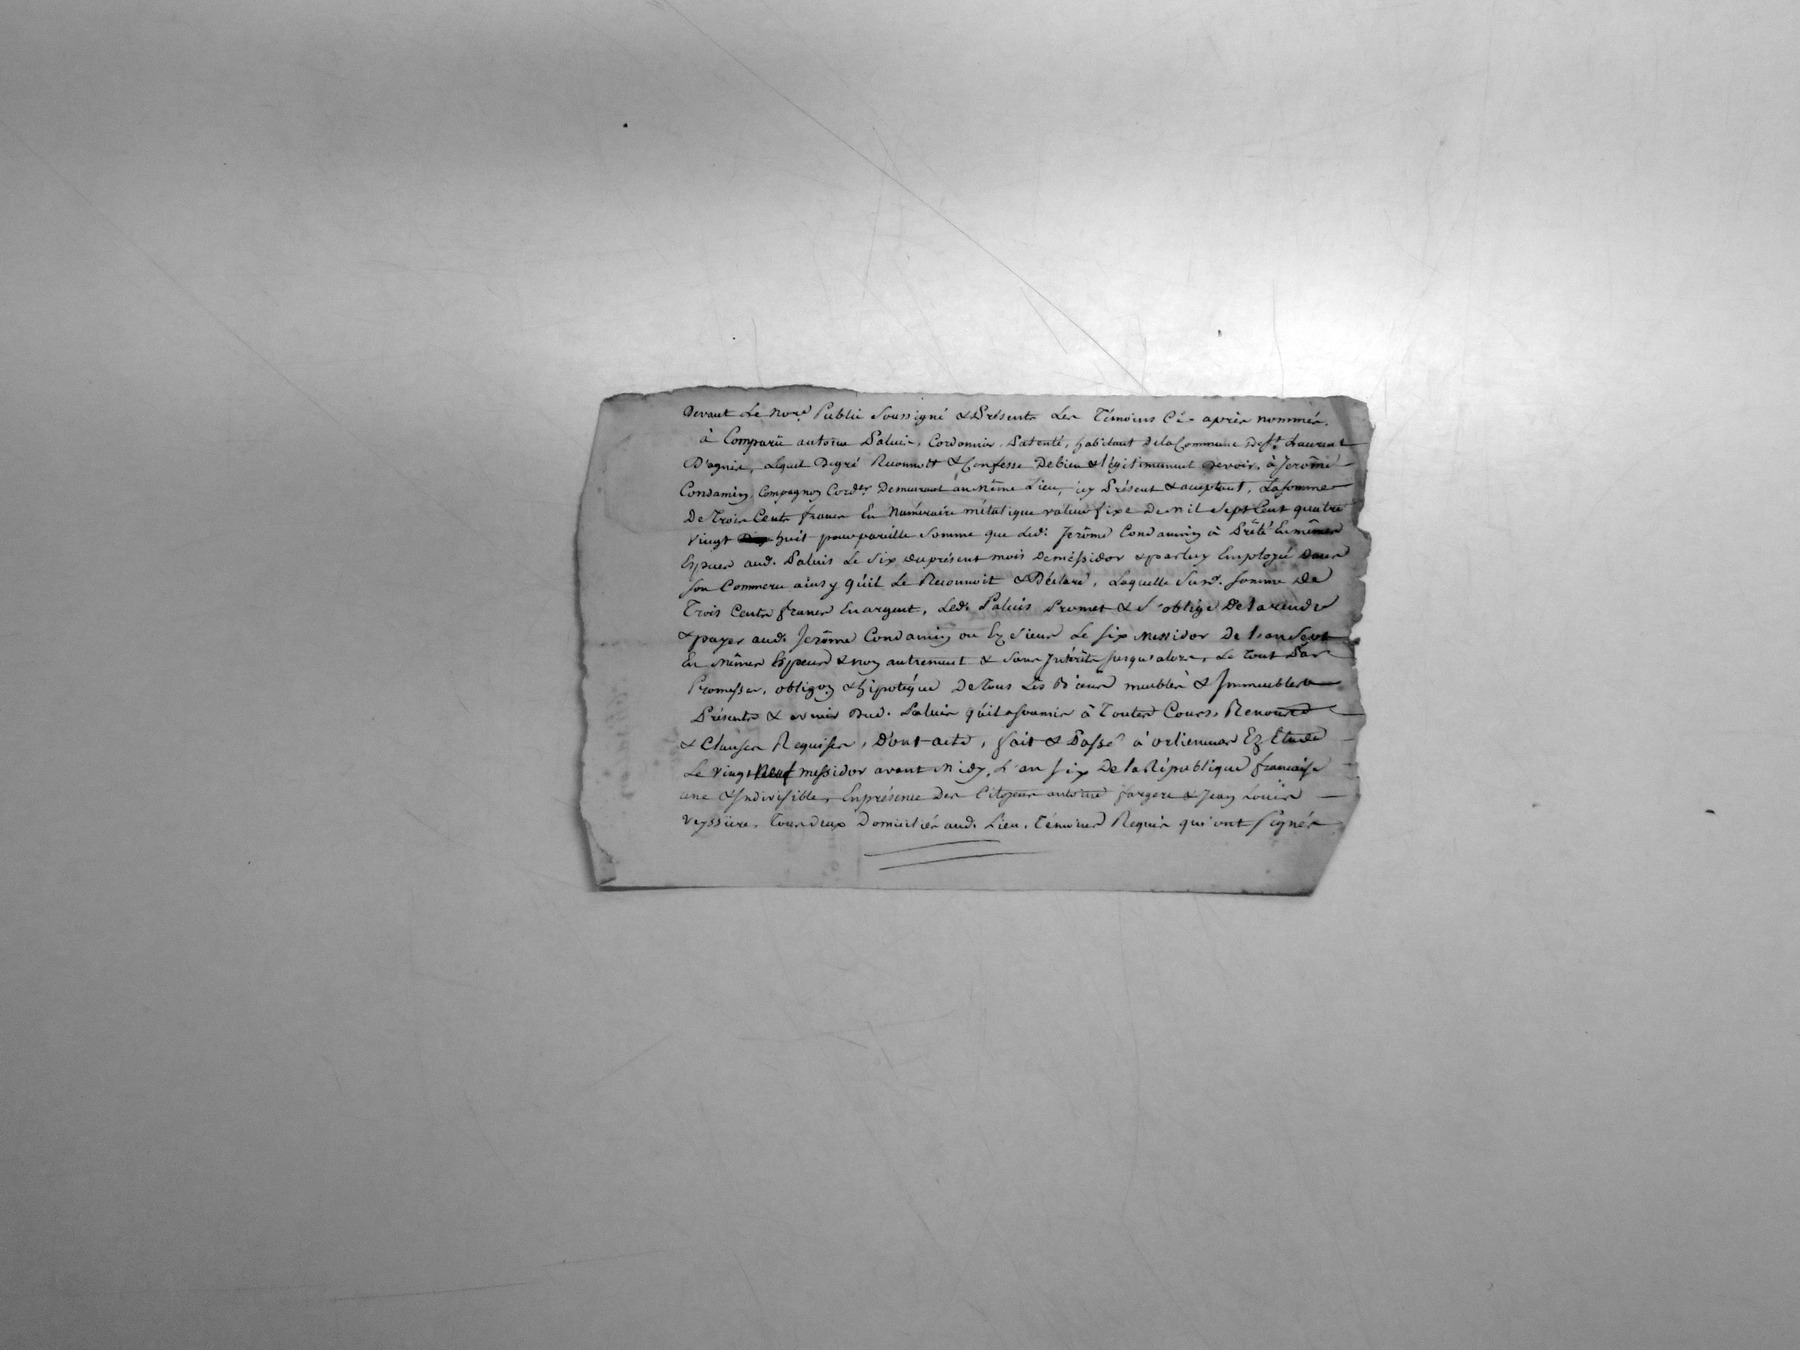 Devant Le nore Public soussigné & Présents Les Témoins Cé-après nommés,
à Comparü antoine Paluis, Cordonnier, Patenté, habitant dela Commune de St Laurent
D'agnis, Lequel Degré Reconnoit & Confesse Debien & légitimement devoir, à Jerôme
Condamin, Compagnon Cordier Demeurant au même Lieu, icy Présent & acceptant, La somme
De Trois Cents francs En Numéraire métalique valeur fixe De mil sept Cent quatre
vingt huit pour pareille Somme que Led. Jerôme Condamin à Prêté En mêmes
Espèces aud. Paluis Le Six du présent mois de messidor & par luy Employé dans
son Commerce ainsy qu'il Le Reconnoit & Déclare, Laquelle Susd. somme de
Trois Cents francs En argent, Led. Paluis Promet & S'oblige De la rendre
& payer aud. Jerôme Condamin ou Ez Siens Le six Messidor De l'an Sept
En Mêmes Espèces & non autrement & sans Intérêts jusqu'alors, Le Tout Par
Promesse, obligon & hipotéque De Tous Les Biens meubles & Immeubles
Présents & avenir Dud. Paluis qu'il a soumis à Toutes Cours, Renonce
& Clauses Requises, D'ont acte, fait & Passé à orlienas Ez Etude
Le vingt Neuf messidor avant Midy, L'an six De la République francaise
une & Indivisible, En présence Des Citoyens antoine fargere & Jean Louis
Veyssiere, Tous deux Domiciliés aud. Lieu, Témoins Requis qui ont signés